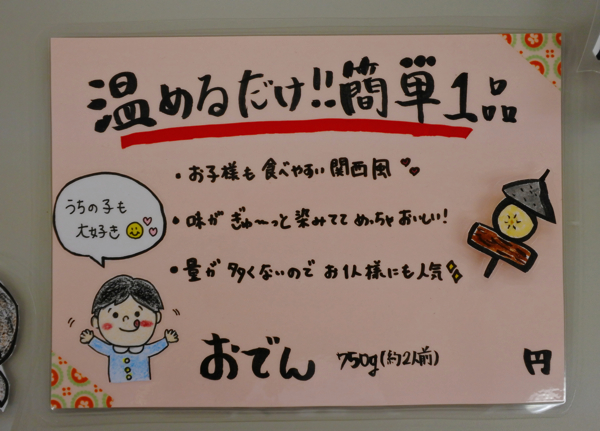 温めるだけ!!簡単1品
・お子様も食べやすい関西風
うちの子も
大好き
・味がぎゅ〜っと染みててめっちゃおいしい!
・量が多くないのでお1人様にも人気
おでん 750g(約2人前) 円